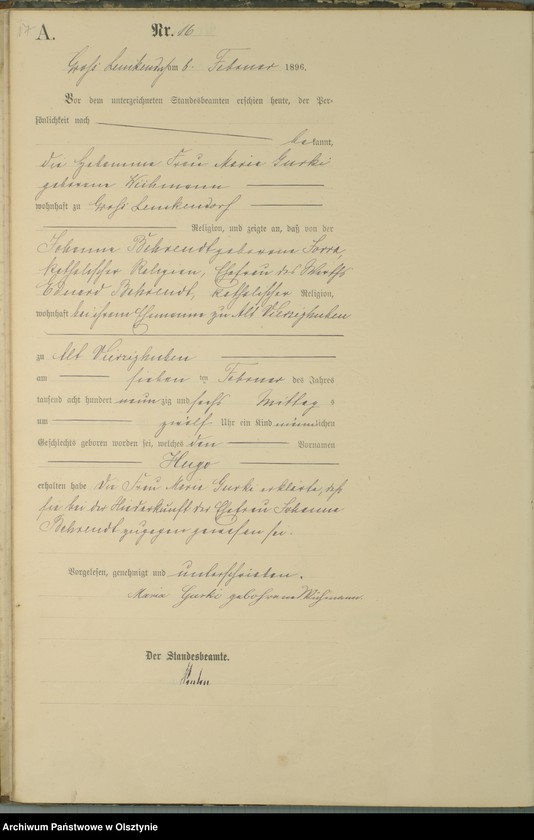 A.
Nr. 16
Groß Lemkendorf am 8. Februar 1896.
Vor dem unterzeichneten Standesbeamten erschien heute, der Per-
sönlichkeit nach
bekannt,
die Hebamme Frau Maria Gurki
geborene Wichmann
wohnhaft zu Groß Lemkendorf
Religion, und zeigte an, daß von der
Johanna Behrendt geborene
katholischer Religion, Ehefrau des Wirths
Eduard Behrendt, katholischer Religion,
wohnhaft bei ihrem Ehemanne zu Alt Vierzighuben
zu Alt Vierzighuben
am sieben ten Februar des Jahres
tausend acht hundert neun zig und sechs Mittag s
um zwölf Uhr ein Kind männlichen
Geschlechts geboren worden sei, welches den Vornamen
Hugo
erhalten habe Die Frau Maria Gurki erklärte, daß
sie bei der Niederkunft der Ehefrau Johanna
Behrendt zugegen gewesen sei.
Vorgelesen, genehmigt und unterschrieben.
Maria Gurki geborene Wichmann
Der Standesbeamte.
Archiwum Państwowe w Olsztynie